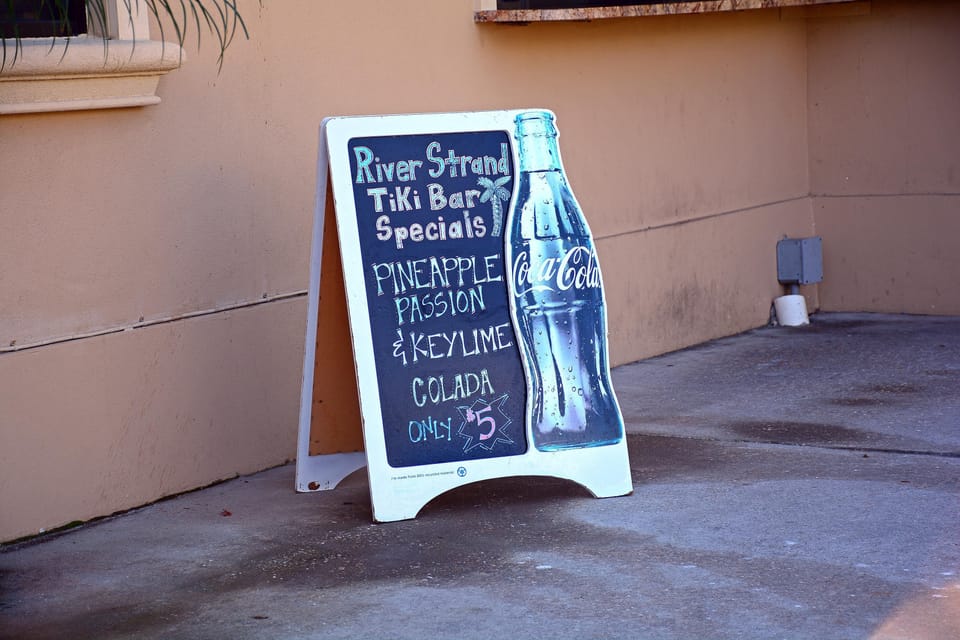 River Strand
Tiki Bar
Specials
PINEAPPLE
PASSION
& KEYLIME
COLADA
ONLY $5
Coca-Cola